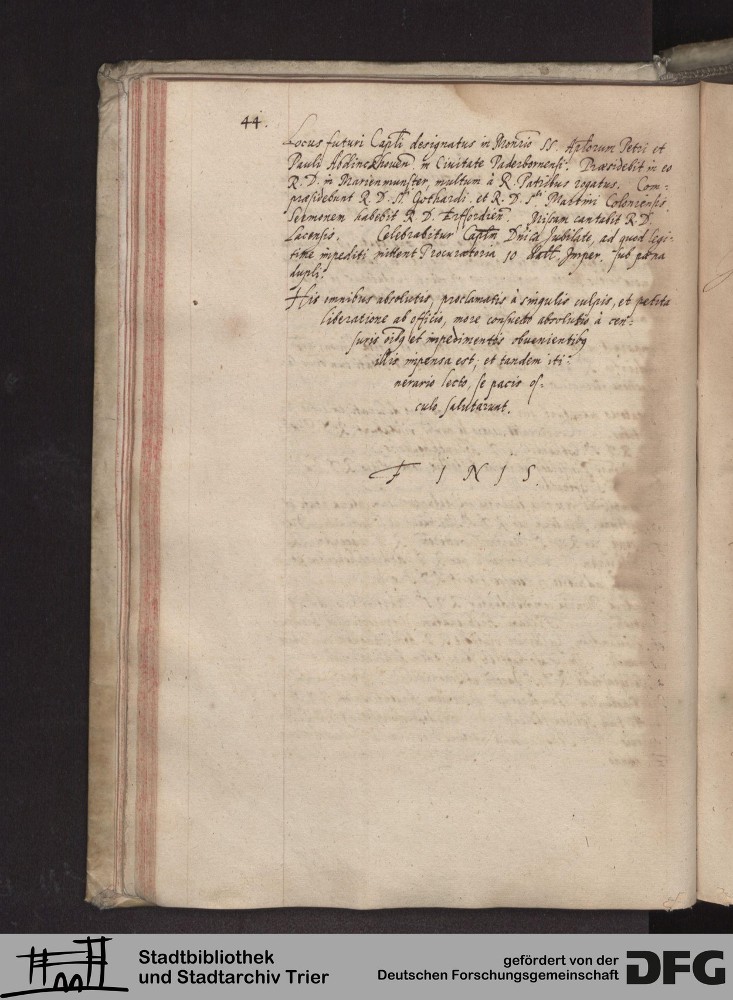 44.
Locus futuri Capli designatus in Monrio SS. Aplorum Petri et
Pauli Abdinckhouen in Ciuitate Paderbornensi. Præsidebit in eo
R. D. in Marienmunster, multum à R. Patribus rogatus. Com-
præsidebunt R. D. Sti Gothardi, et R. D. Sti Martini Coloniensis.
Sermonem habebit R. D. Erffordien. Missam cantabit R. D.
Lacensis. Celebrabitur Caplm Dnica Jubilate, ad quod legi-
time impediti mittent Procuratoria 10 Jmper. sub pæna
dupli.
His omnibus absolutis, proclamatis à singulis culpis, et petita
liberatione ab officiis, more consueto absolutio à cen-
suris oibg et impedimentis obuenientibg
illis impensa est, et tandem iti-
nerario lecto, se pacis os-
culo salutarunt.
F I N I S.
Stadtbibliothek
und Stadtarchiv Trier
gefördert von der
Deutschen Forschungsgemeinschaft
DFG